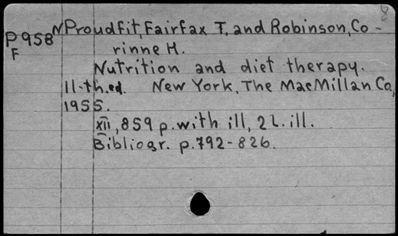 N Proudfit, Fairfax T, and Robinson, Co-
P958
F
rinne H.
Nutrition and diet therapy.
11-th.ed. New York, The MacMillan Co,
1955.
XII, 859 p. with ill, 2 L. ill.
Bibliogr. p.792-826.